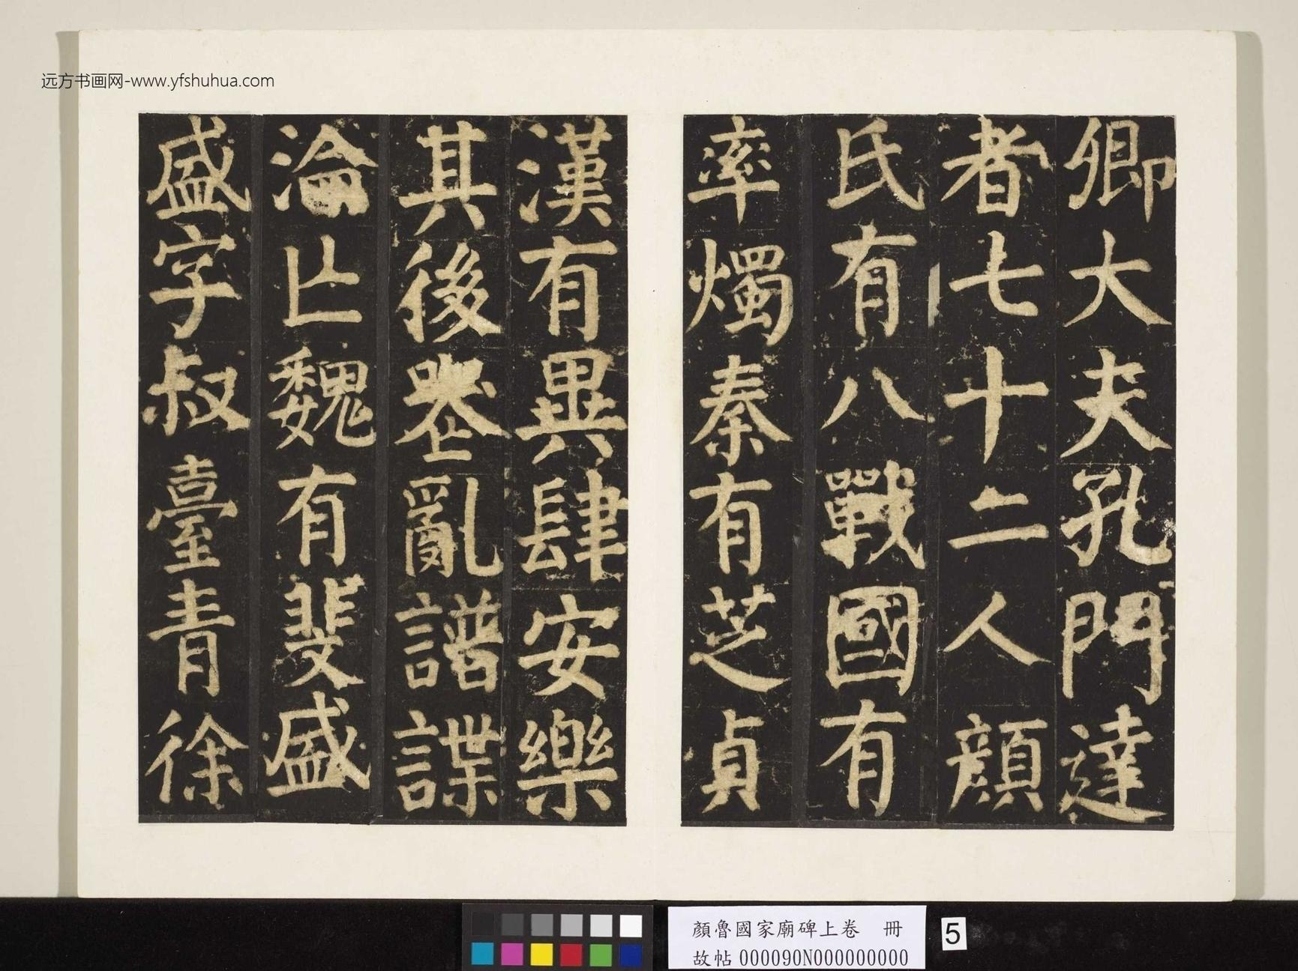 远方书画网-www.yfshuhua.com
卿大夫孔門達
者七十二人顏
氏有八戰國有
率燭秦有芝貞
漢有異肆安樂
其後喪亂譜諜
淪亡魏有斐盛
盛字叔臺青徐
顏魯國家廟碑上卷 冊
故帖000090N000000000
5